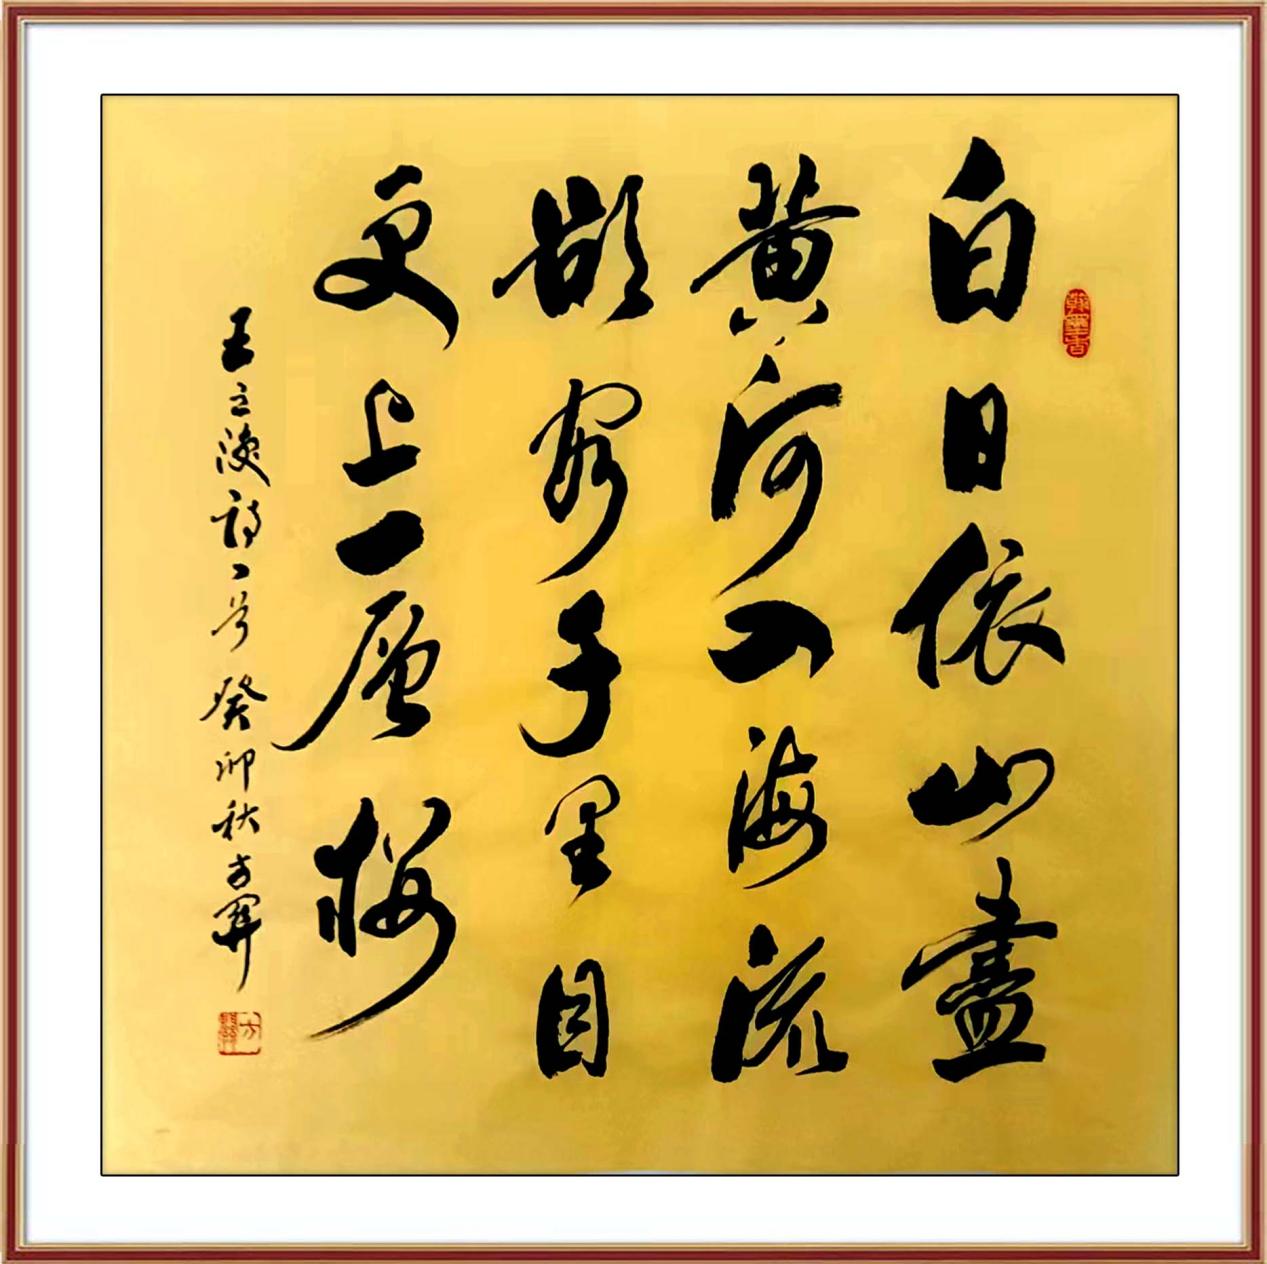 翰墨香
白日依山盡
黄河入海流
欲窮千里目
更上一層樓
王之渙詩一首 癸卯秋方開
方開